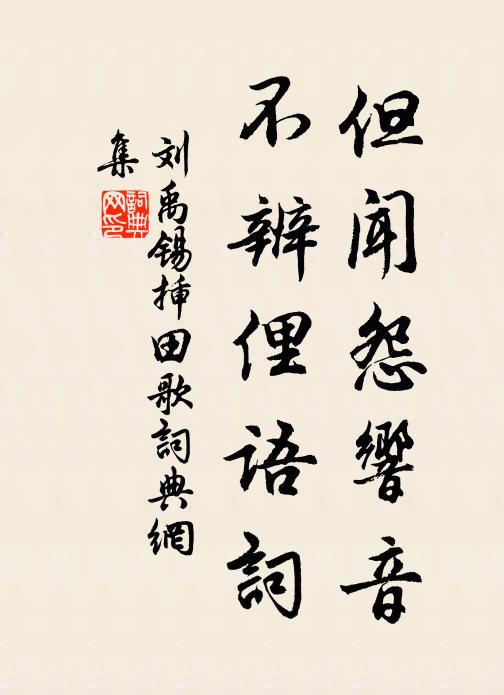 但闻怨響音
不辨俚语詞
刘禹锡挿田歌詞典網
集
詞典
网印